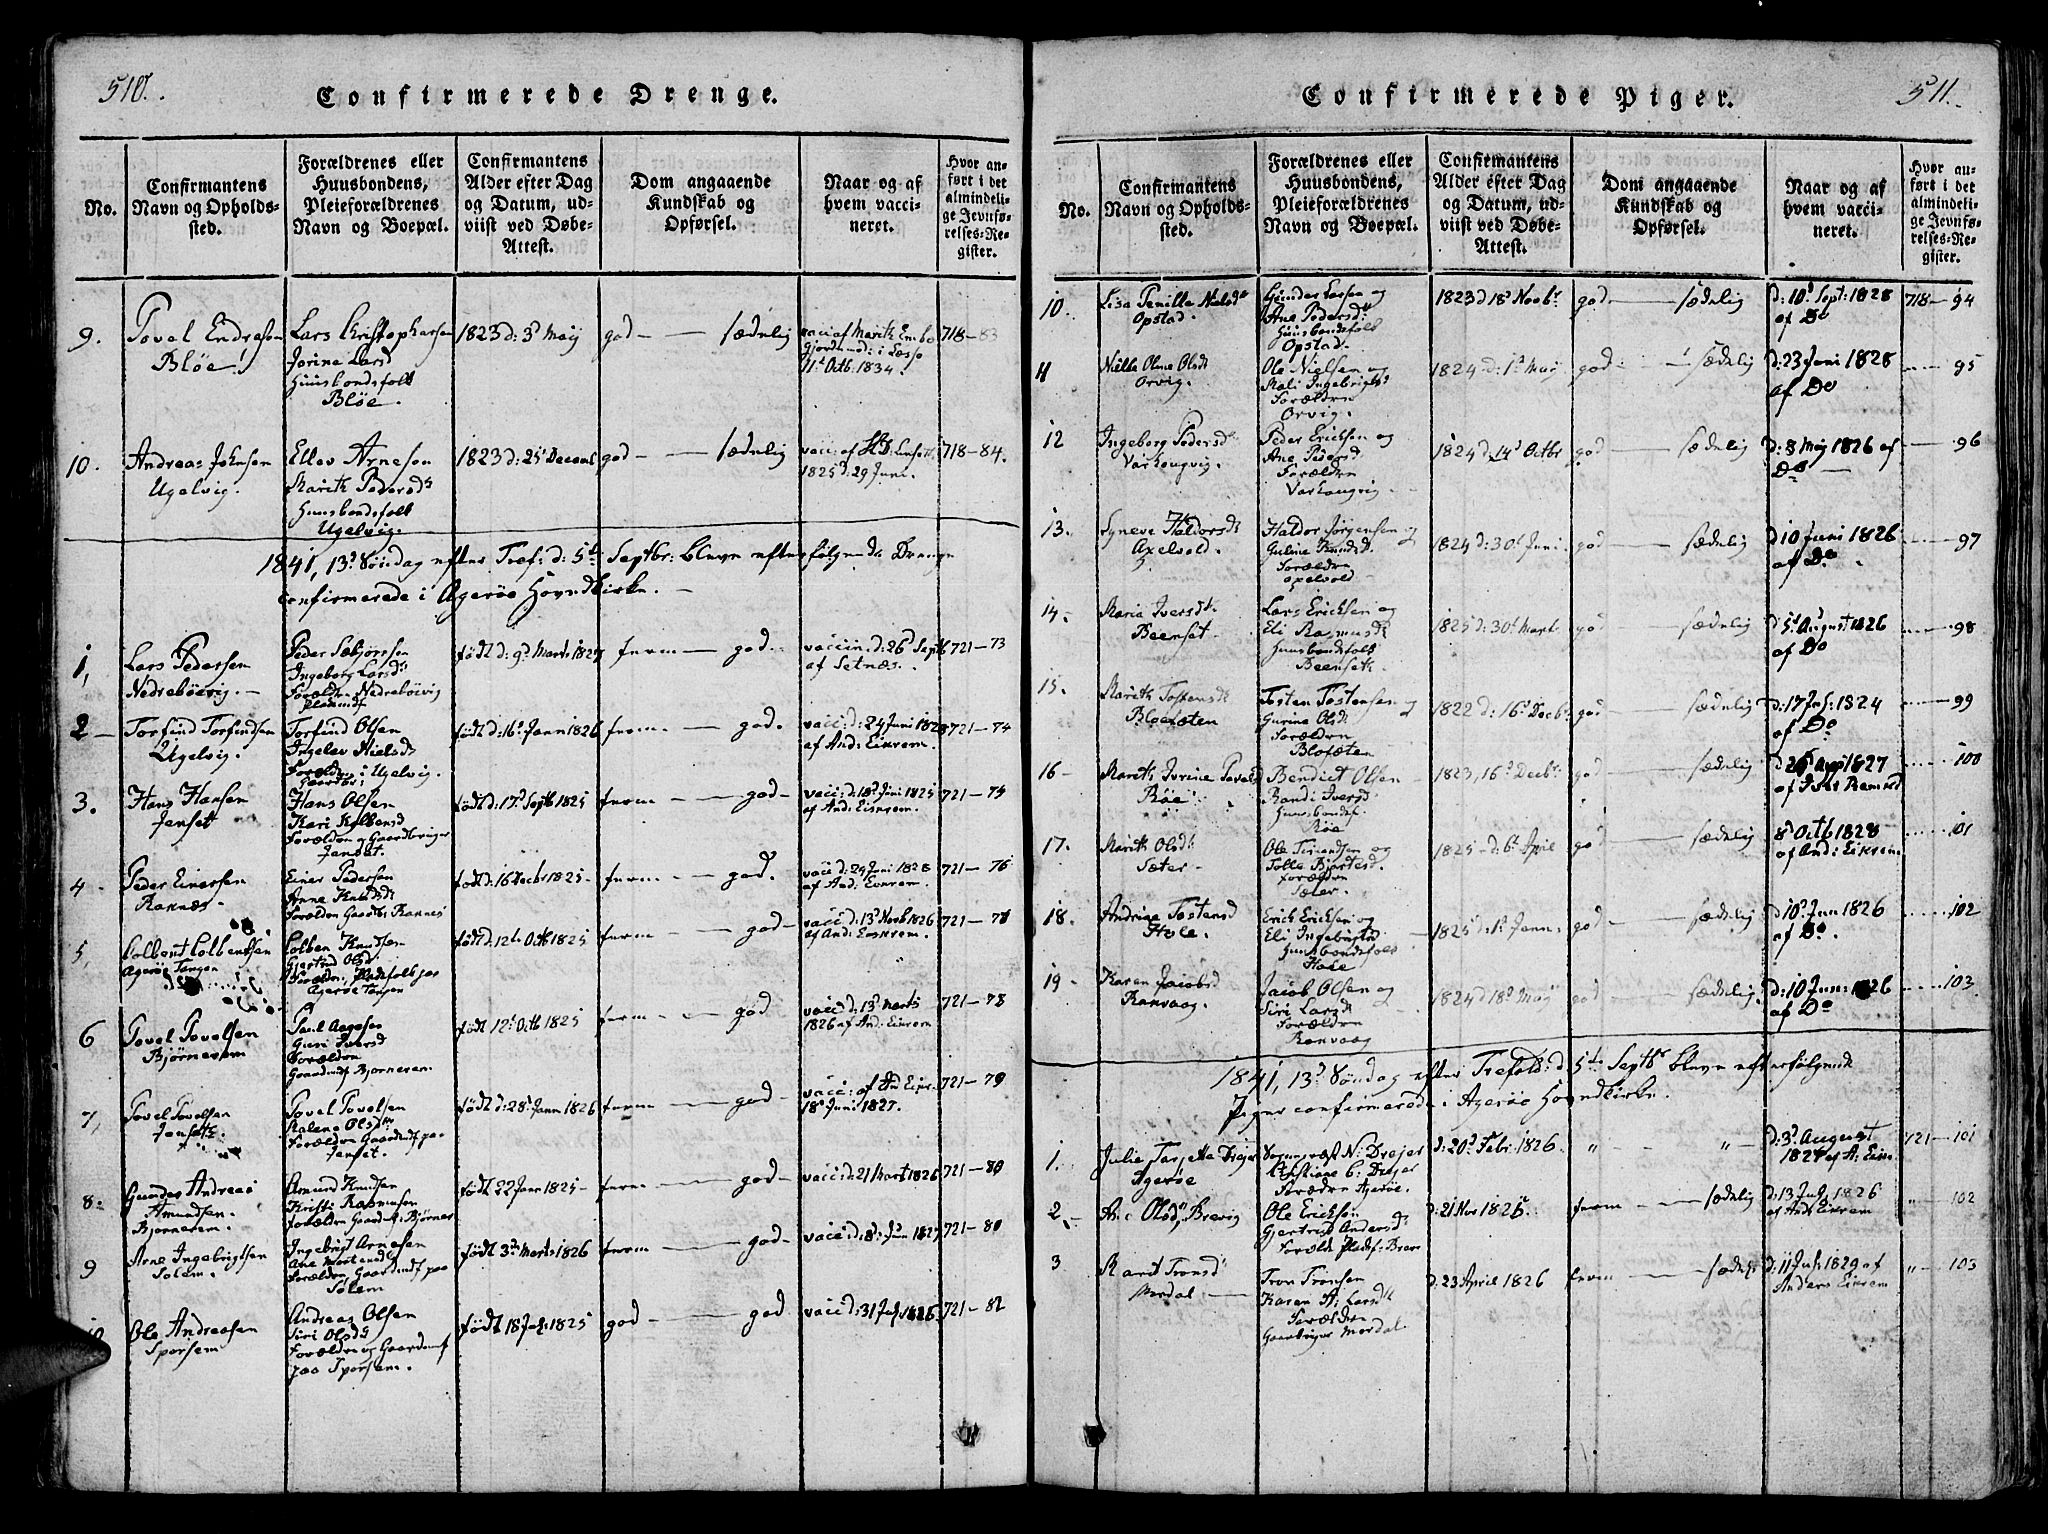 510.
Confirmerede Drenge.
No.
Confirmantens
Navn og Opholds-
sted.
Forældrenes eller
Huusbondens,
Pleieforældrenes
Navn og Boepæl.
Confirmantens
Alder efter Dag
og Datum, ud-
viist ved Døbe-
Attest.
Dom angaaende
Kundskab og
Opførsel.
Naar og af
hvem vacci-
neret.
Hvor an-
ført i det
almindeli-
ge Jevnfø-
relses-Re-
gister.
9.
Povel Endresen
Bløe
Lars Christophersen
Jorine Larsd
Huusbondsfolk
Bløe.
1823 d: 3d Maij
god — sædelig
11t Octb: 1834.
718—83
10.
Andreas Johnsen
Ugelvig.
Ellev Arnesen
Marith Pedersdr
Huusbondsfolk
Ugelvig.
1823 d: 25d Decemb
god — sædelig
1825 d: 29 Juni.
718—84.
1841, 13d Søndag efter Tref: d: 5te Septbr: bleve efterfølgende Drenge
confirmerede i Agerøe Hovedkirke. —
1,
Lars Pedersen
Nedrebøevig. —
Peder Sæbjornsen
Ingeborg Larsdr
Forældre Nedrebøevig
født d: 9d Marts 1827
ferm — god.
vaccin. d: 26d Septb
af Setnæs.
721—73
2 —
Torfind Torfindsen
Ugelvig.
Torfind Olsen
Ingelev Nielsdr
Forældre i Ugelvig.
født d: 16d Janr 1826
ferm — god.
vacc: d: 24 Juni 1828
af And: Eikrem.
721—74
3.
Hans Hansen
Jenset
Hans Olsen
Kari Kolbensd
Forældre og Gaardbruger
Jenset.
født d: 17d Septb 1825
ferm — god —
vacc: d: 10d Juni 1825
af And: Eikrem.
721—75
4 —
Peder Einersen
Ranvæs.
Einer Pedersen
Anne Knudsdr
født d: 16 Decbr 1825 —
ferm — god.
vacc d: 29 Juni 1828
af And: Eikrem.
721—76
5,
Colbent Colbentsen
Agerøe Tangen
Colben Knudsen
Gjertrud Olsdr
Forældre, Pladsfolk paa
Agerøe Tangen
født d: 12te Octb 1825
ferm — god —
vacc d: 13d Novb 1826
af And: Eikrem.
721—77
6
Povel Povelsen
Bjørnerem
Poul Aagesen
Guri Iversd
Forældre
Gaardmdf Bjørnerem.
født 12t Octb 1825
ferm — god
vacc: d: 13d Marts
1826 af And: Eikrem
721—78
7,
Povel Povelsen
Jenset
Povel Povelsen
Malene Olsdtr
Forældre Gaardmdf paa
Jenset.
født d: 28d Janr 1826
ferm — god
vacc: af And Eikr.
18d Juni 1827.
721—79
8.
Gunder Andreas
Amundsen.
Bjørnerem.
Amund Knudsen
Kristi Rasmusen
født 22 Janr 1825 —
ferm — god —
vacc: d: 21 Mart 1826
721—80
9
Arne Ingebrigtsen
Solem.
Ingebrigt Arnesen
Ane Mortensd
Forældre, Gaardmdf paa
Solem
født 3de Marts 1826
ferm — god —
vacc: d: 8d: Jun 1827
721—80
10
Ole Andreasen
Sporsem
Andreas Olsen
Siri Olsdr
Forældre og Gaardmf
paa Sporsem.
født 18 Jul: 1825
god — god
vacc d: 31 Jul: 1826
721—82
511.
Confirmerede Piger.
No.
Confirmantens
Navn og Opholds-
sted.
Forældrenes eller
Huusbondens,
Pleieforældrenes
Navn og Boepæl.
Confirmantens
Alder efter Dag
og Datum, ud-
viist ved Døbe-
Attest.
Dom angaaende
Kundskab og
Opførsel.
Naar og af
hvem vacci-
neret.
Hvor an-
ført i det
almindeli-
ge Jevnfø-
relses-Re-
gister.
10.
Lisa Pernille Nielsdr
Opstad.
Gunder Larsen og
Ane Pedersdr
Huusbondsfolk
Opstad.
1823 d 18d Novbr
god — sædelig
d: 10d Sept: 1828
af Do
718—94
11
Nielle Oline Olsdr
Orvig.
Ole Nielsen og
Mali Ingebrigtsd
Forældre
Orvig.
1824 d: 1d Maij
god — sædelig
d: 23 Juni 1828
af Do
95
12
Ingeborg Pedersdr
Peder Ericksen og
Ane Pedersd
Forældre
1824 d 14d Octbr
god — sædelig
d: 8 Maj 1826 af
Do —
96
13.
Synneve Haldorsdr
Axelvold.
Haldor Jørgensen og
Guline Knudsdr.
Forældre
Axelvold
1824 d: 30d Juni
god — sædelig
d 10 Juni 1826
af Do
97
14 —
Maria Iversdr.
Beenset.
Lars Ericksen og
Eli Rasmusdr
Huusbondsfolk
Beenset
1825 d: 30d Marts
god — sædelig
d 5t August 1826
af Do
98
15.
Marith Tostensdr
Bloesæten
Tosten Tostensen og
Gurine Olsdr
Forældre
Blosæten
1822 d: 16d Decbr
god — sædelig
d: 17 Jul: 1824
af Do
99
16 —
Marith Jorine Povelsd
Røe
Bendict Olsen
Randi Iversd
Huusbondsf.
Røe
1823, 16d Decbr
god — sædelig
100
17.
Marith Olsdr
Sæter
Ole Tommdsen og
Forældre
Sæter.
1825 — d: 6d April
god — sædelig
8d Octb 1828
af And: Eikrem
101
18.
Andrine Tostensd
Hole.
Erick Ericksen og
Eli Ingebrigtsd
Huusbondsfolk
Hole
1825 d: 1d Janr:
god — sædelig
d 10d Jun 1826
af Do.
102
19 —
Karen Jacobsd
Ranvaag.
Jacob Olsen og
Siri Larsdr
Forældre
Ranvaag
1824 d 18d Maij
god — sædelig.
d: 10 Jun: 1826
af Do
103.
1841, 13d Søndag efter Trefold: d 5te Septbr bleve efterfølgende
Piger confirmerede i Agerøe Hovedkirke.
1.
Agerøe
Sognepræst N: Drejer
Christiane C. Drejer
Forældre Agerøe.
d: 20d Febr: 1826.
" — "
d: 3d August
721—101
2, —
Ane Olsdr Brevig
Ole Ericksen
Gjertrud Andersdr
d: 21 Nov 1826.
ferm — sædelig
d: 13 Jul: 1826
af And: Eikrem
" — 102
3
Marit Tronsdr
Mordal —
Tron Tronsen
Karen A: Larsdr
Forældre
Gaardbruger Mordal
d: 23 April 1826
ferm — sædel:
d: 11 Jul: 1829 af
Anders Eikrem
" — 103